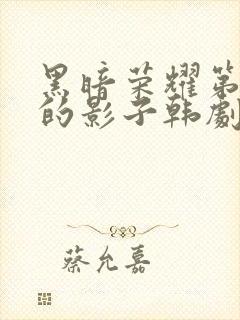 黑暗荣耀第
的影子韩劇
蔡允嘉